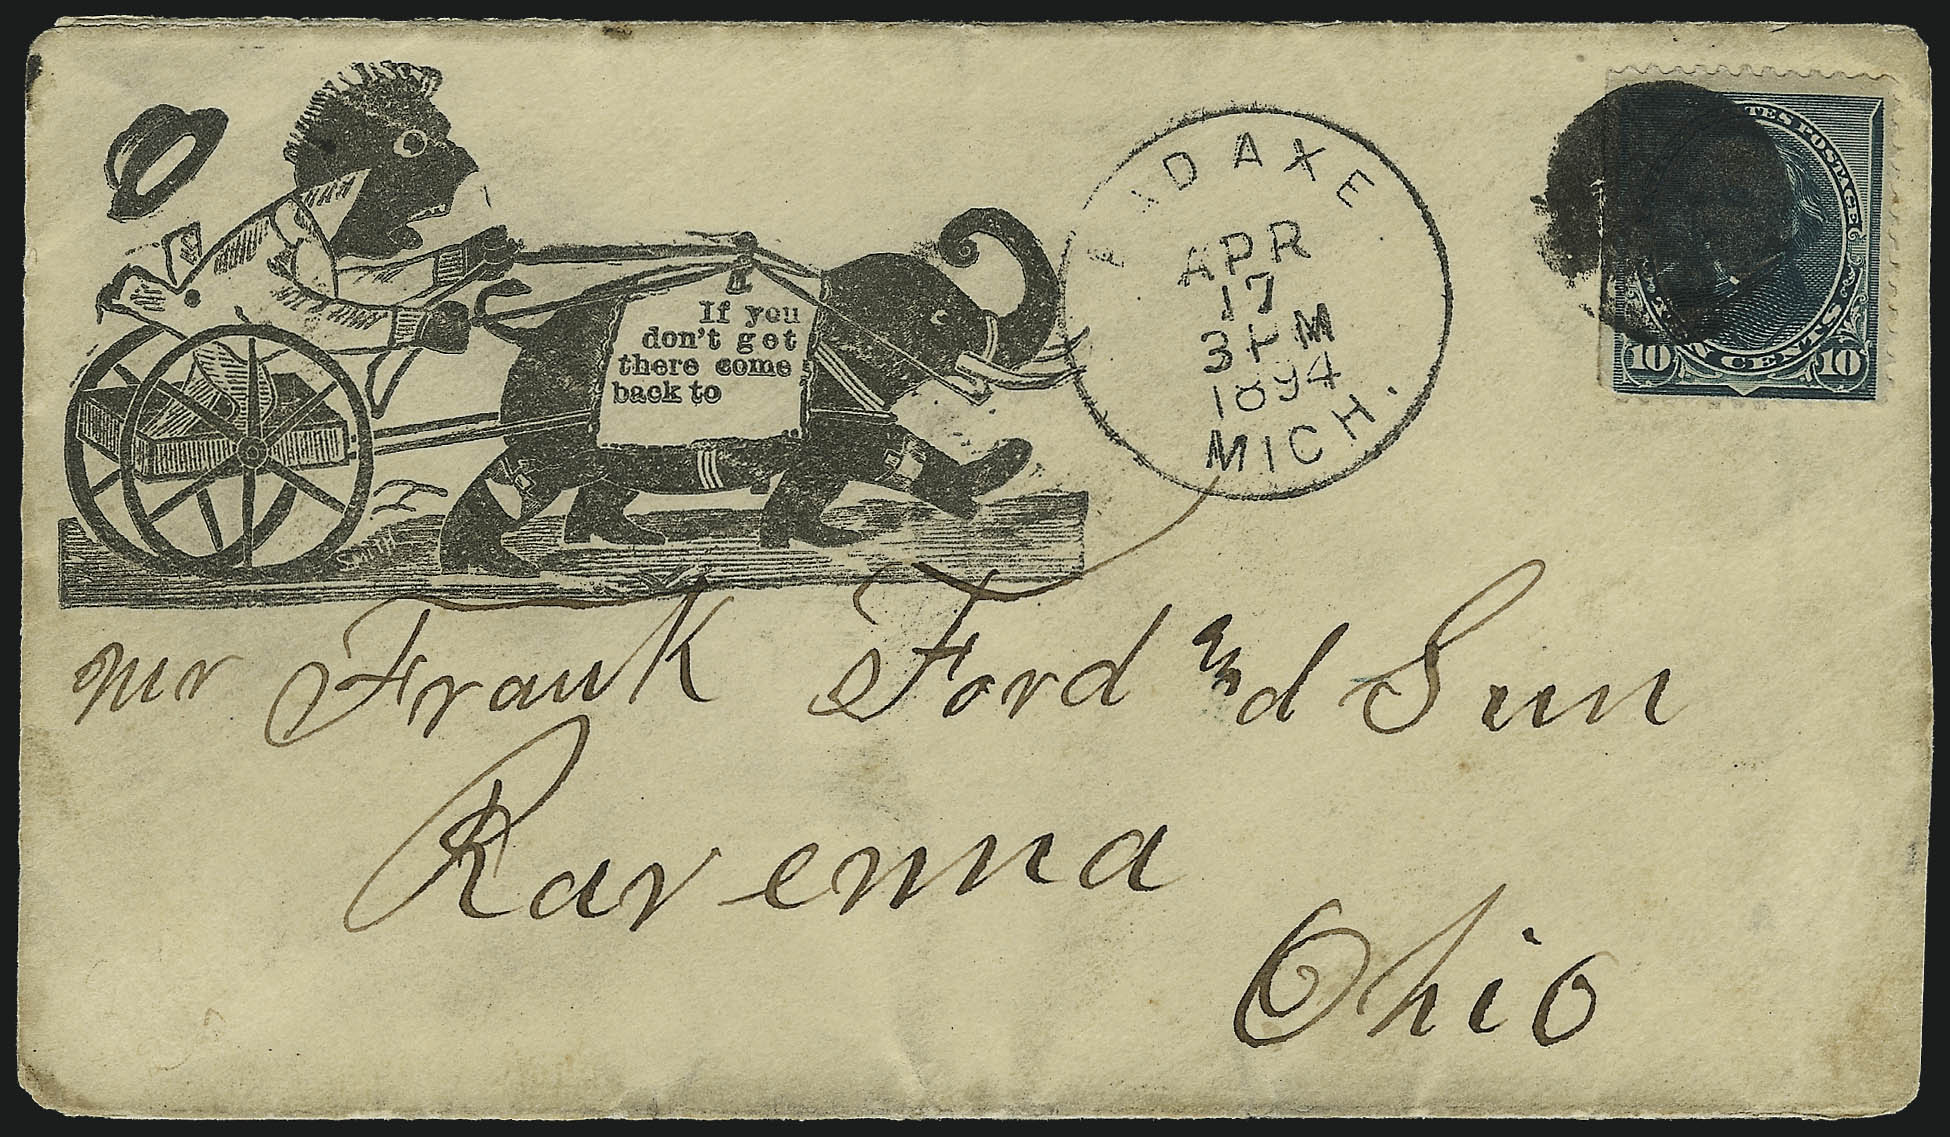 If you
don't get
there come
back to
BADAXE
APR
17
3 PM
1894
MICH.
TES POSTAGE
10 CENTS 10
SMITH
mr Frank Ford and Sun
Ravenna
Ohio